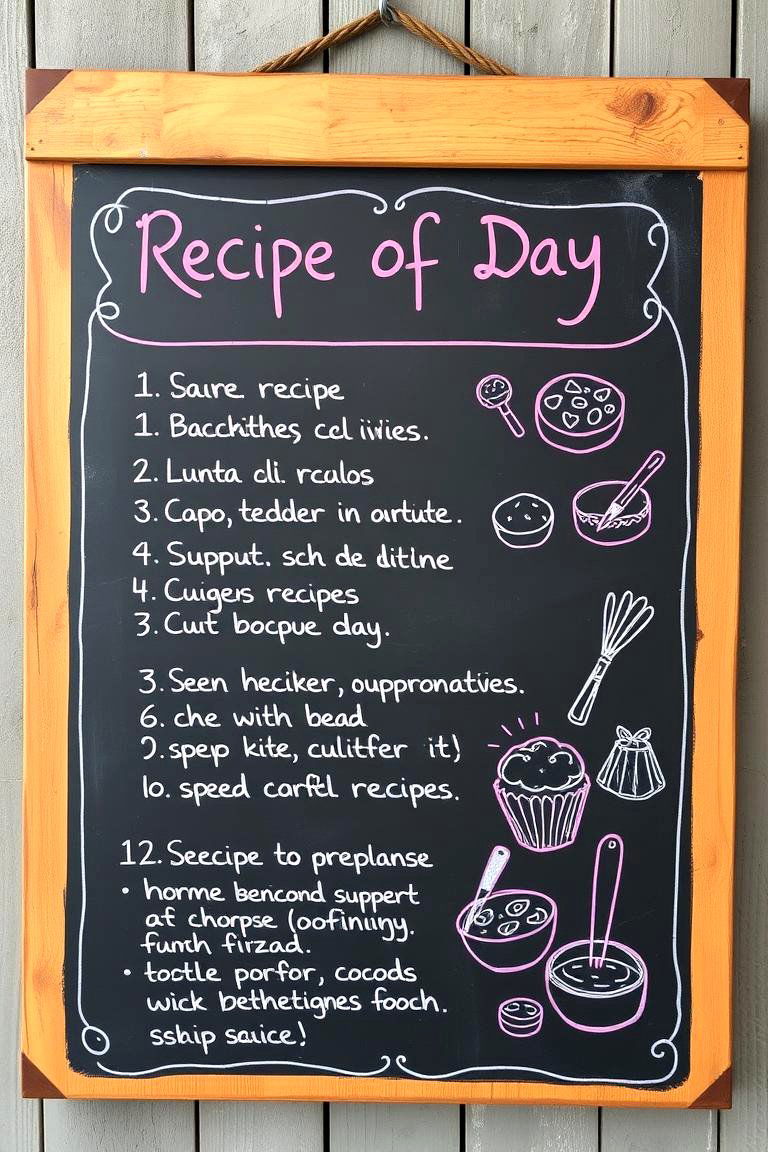 Recipe of Day
1. Saure recipe
1. Bacchithes, ccl iivies.
2. Lunta cli. rcalos
3. Capo, tedder in artute.
4. Supput. sch de ditlne
4. Cuigers recipes
3. Cuit bocpue day.
3. Seen heciker, ouppronatives.
6. che with bead
9. spep kite, culitfer it)
10. speed carftl recipes.
12. Seecipe to preplanse
• horme bencond support
af chorpse (oofiniugy.
funth firzad.
• toctle porfor, cocods
wick bethetignes fooch.
sship sauice!